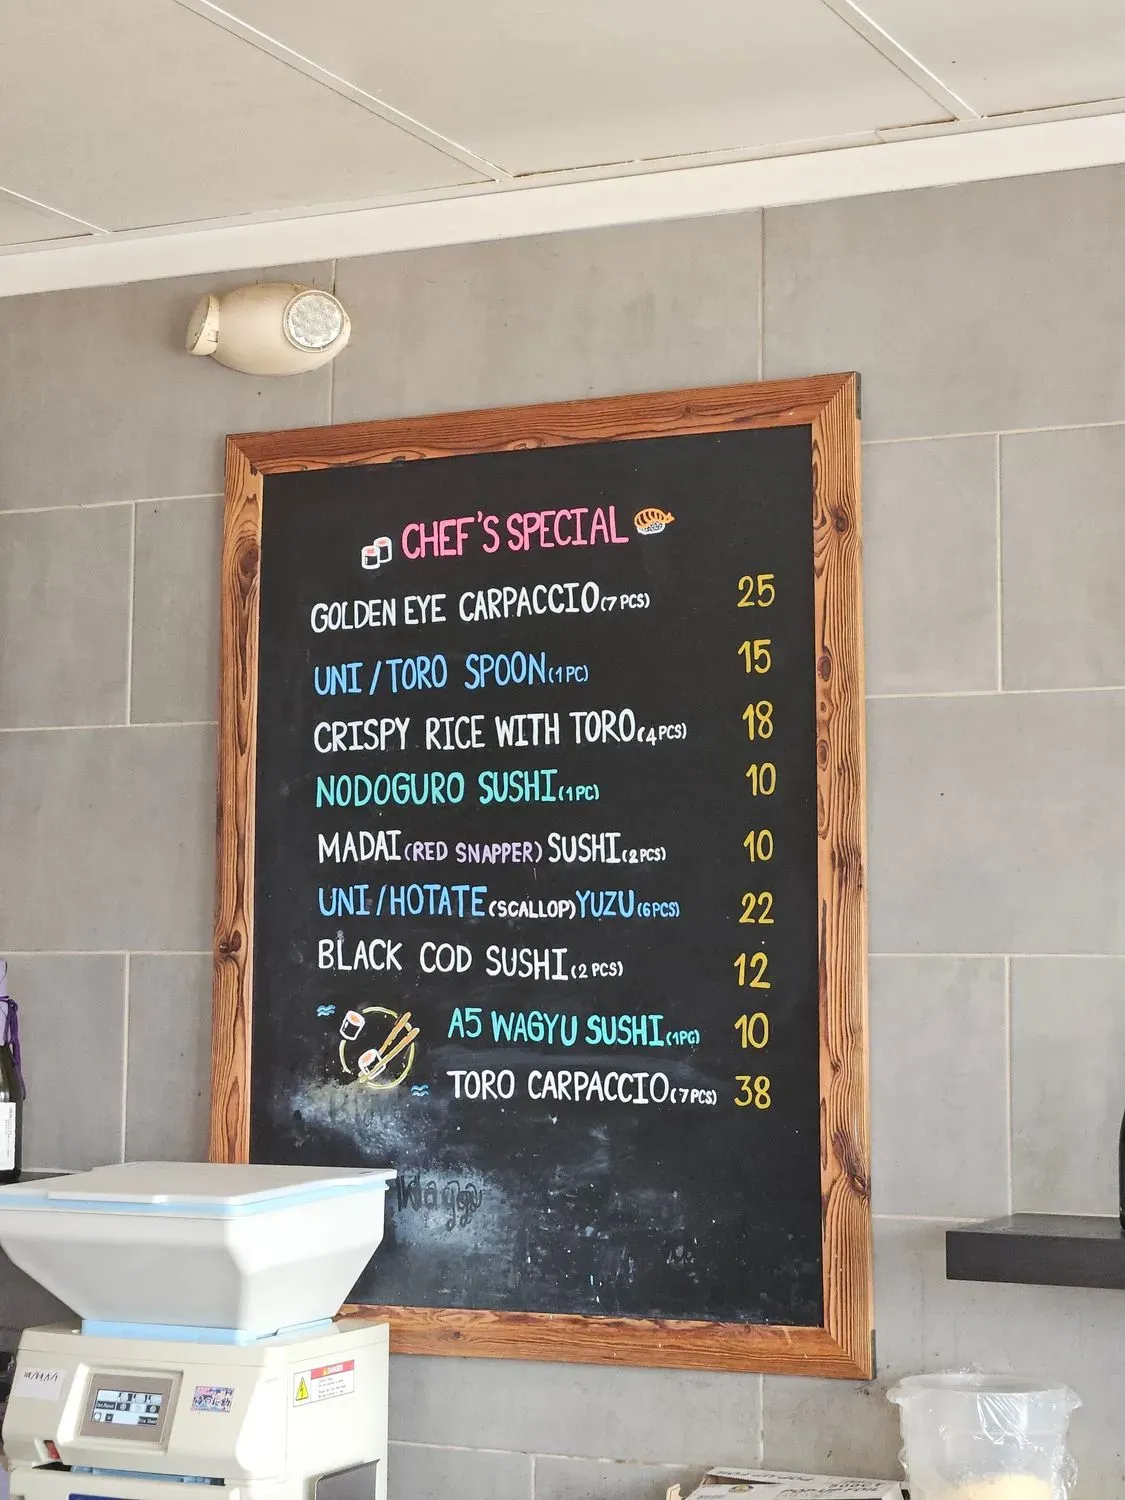 CHEF'S SPECIAL
GOLDEN EYE CARPACCIO (7 PCS) 25
UNI / TORO SPOON (1 PC) 15
CRISPY RICE WITH TORO (4 PCS) 18
NODOGURO SUSHI (1 PC) 10
MADAI (RED SNAPPER) SUSHI (2 PCS) 10
UNI / HOTATE (SCALLOP) YUZU (6 PCS) 22
BLACK COD SUSHI (2 PCS) 12
A5 WAGYU SUSHI (1 PC) 10
TORO CARPACCIO (7 PCS) 38
DANGER